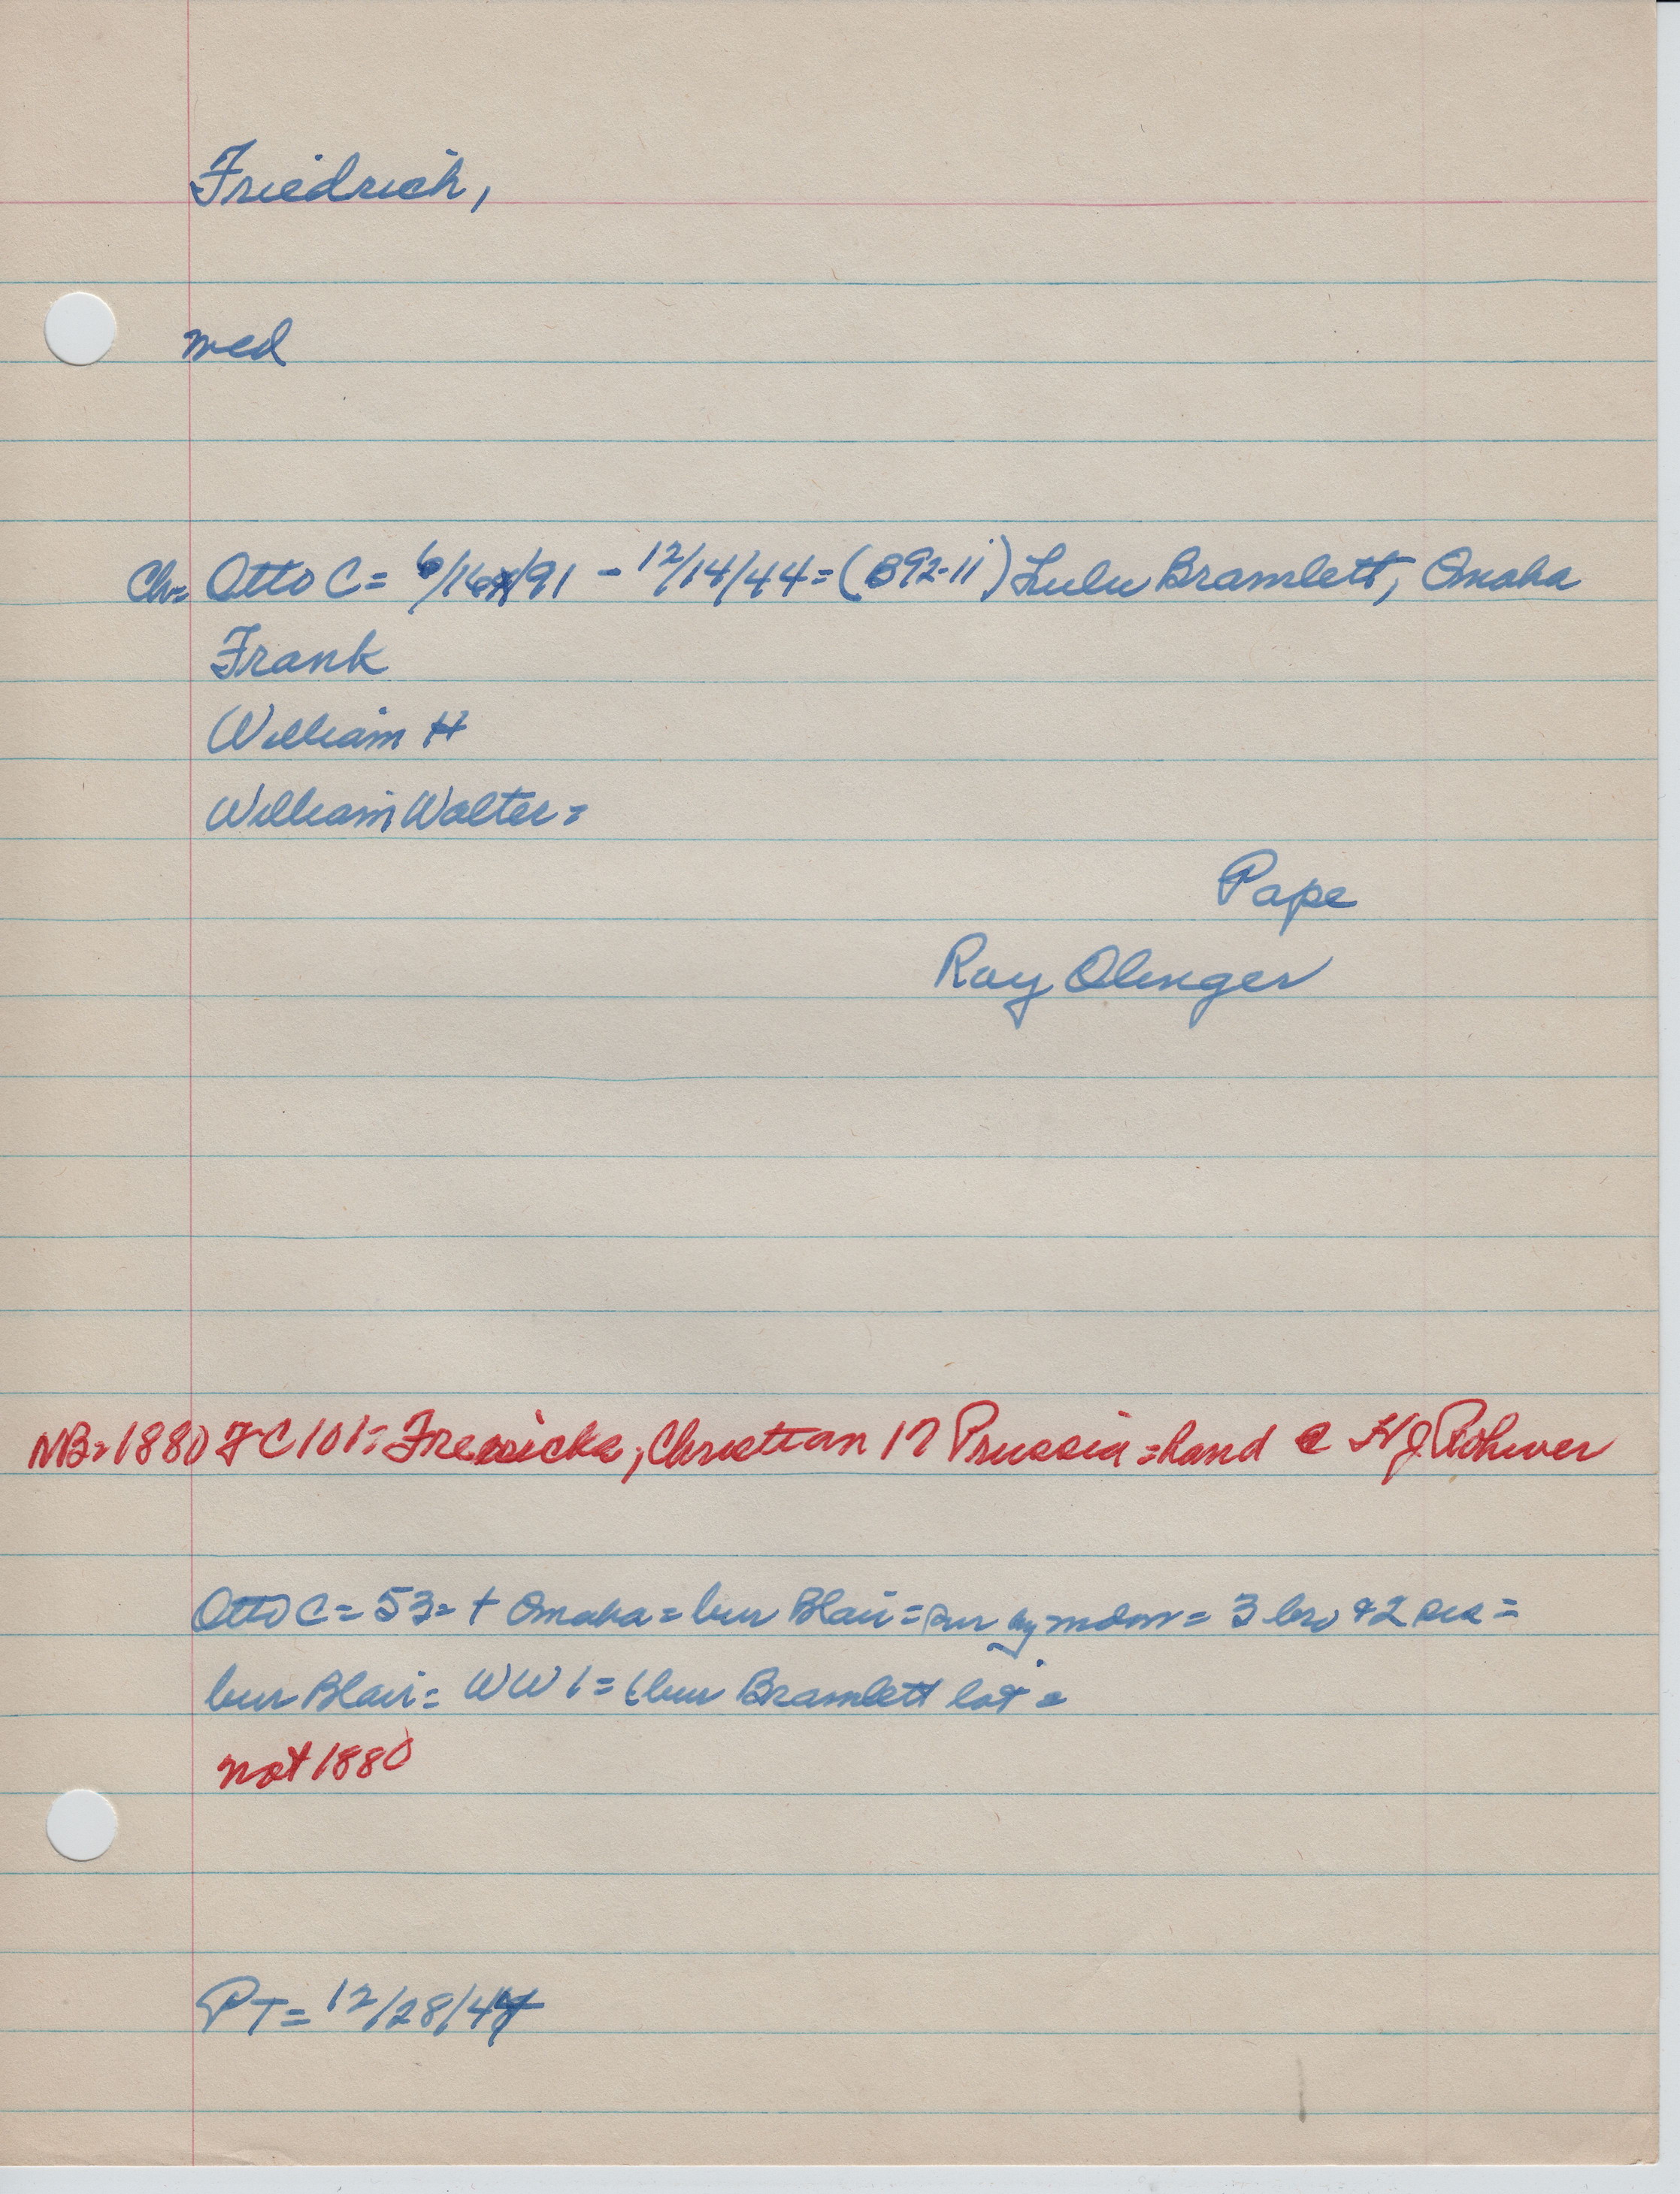 Friedrich,
med
Ch= Otto C= 6/16/91 - 12/14/44=(B92-11) Lulu Bramlett, Omaha
Frank
William H
William Walter=
Pape
Ray Olinger
NB=1880 FC101= Fredricks, Christian 17 Prussia=hand @ HJ Rohwer
Otto C= 53= + Omaha= bur Blair= sur by mdm= 3 bro & 2 sis=
bur Blair= WW1= (bur Bramlett lot=
not 1880
PT= 12/28/44